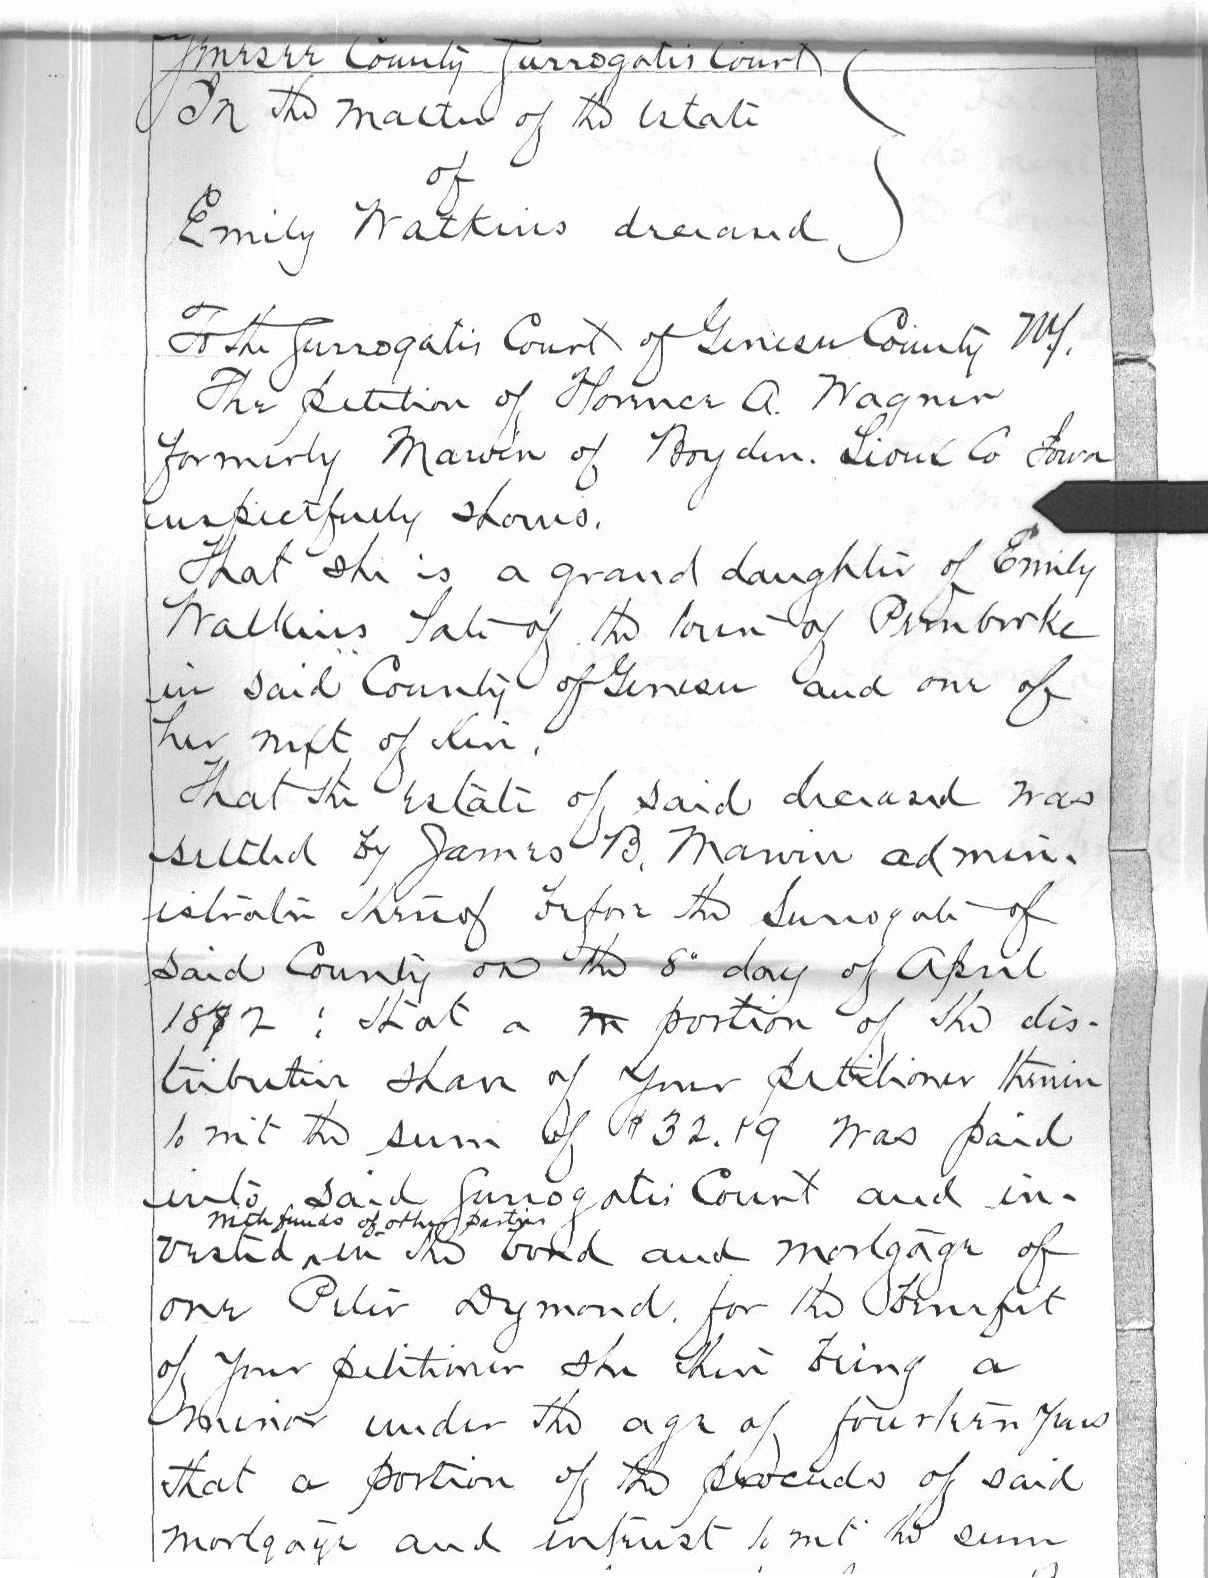 Genesee County Surrogates Court
In the matter of the Estate
of
Emily Watkins deceased
To the Surrogates Court of Genesee County N.Y.
The petition of Florence A. Wagner
formerly Marvin of Boyden. Sioux Co Iowa
respectfully shows.
That she is a grand daughter of Emily
Watkins late of the town of Pembroke
in said County of Genesee and one of
her next of kin.
That the estate of said deceased was
settled by James B. Marvin admin-
istrator thereof before the Surrogate of
said County on the 8" day of April
1872 : that a portion of the dis-
tributive share of your petitioner therein
to wit the sum of $32.19 was paid
into said Surrogates Court and in-
with funds of other parties
vested ‸ in the bond and mortgage of
one Peter Dymond. for the benefit
of your petitioner she then being a
minor under the age of fourteen years
that a portion of the proceeds of said
mortgage and interest to wit the sum